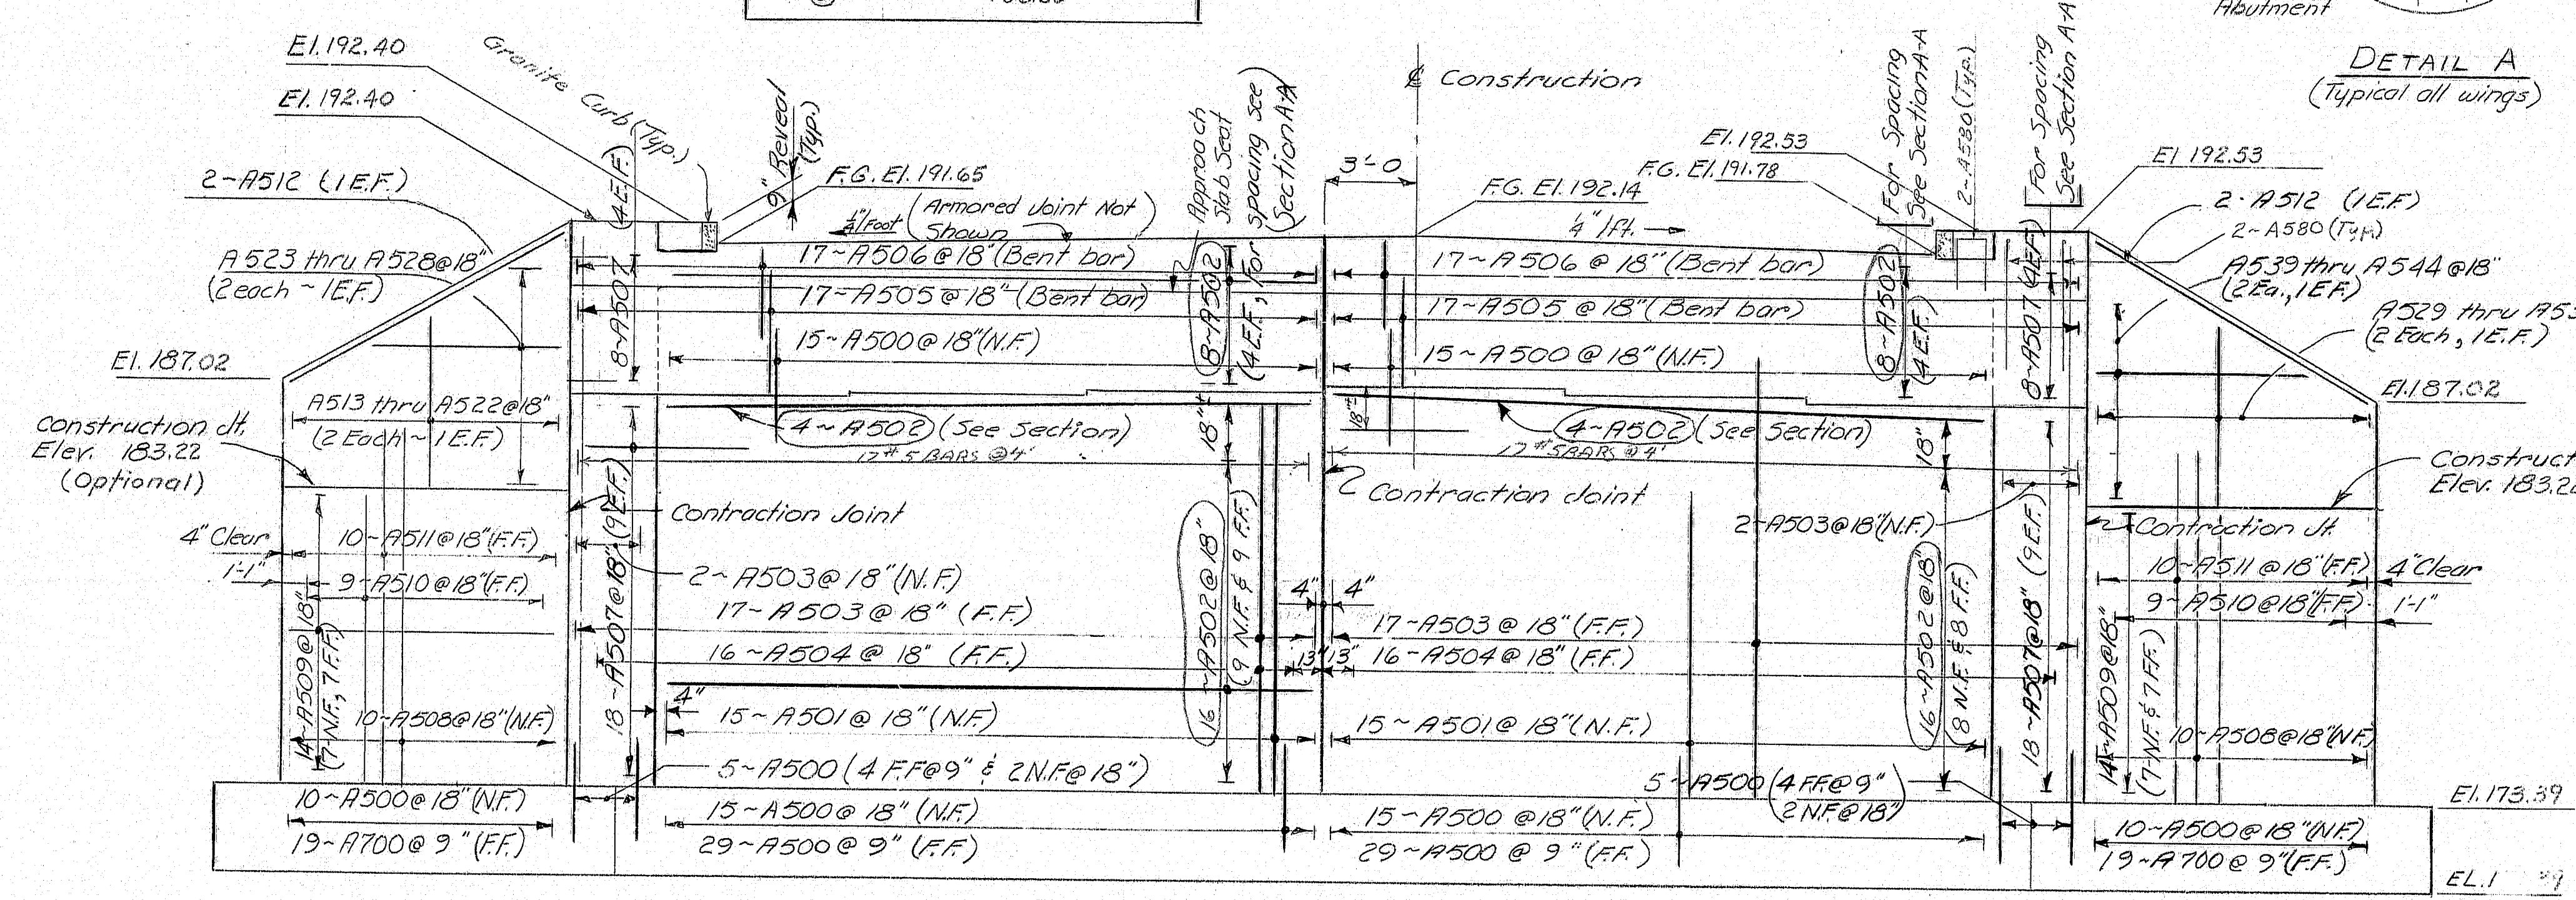 Abutment
DETAIL A
(Typical all wings)
El. 192.40
El. 192.40
Granite Curb (Typ.)
9" Reveal
(Typ.)
F.G. El. 191.65
1/4"/Foot
(Armored Joint Not
Shown)
Approach
Slab Seat
8~A502
(4 E.F., For
spacing see
Section A-A)
℄ Construction
3'-0
F.G. El. 192.14
1/4"/ft.
El. 192.53
F.G. El. 191.78
For Spacing
See Section A-A
2~A580 (Typ.)
For Spacing
See Section A-A
El 192.53
2-A512 (1 E.F.)
2~A580 (Typ.)
A539 thru A544@18"
(2 Ea., 1 E.F.)
A529 thru
(2 Each, 1 E.F.)
2~A512 (1 E.F.)
A523 thru A528@18"
(2 each ~ 1 E.F.)
8~A507 (4 E.F.)
17~A506@18" (Bent bar)
17~A505@18" (Bent bar)
15~A500@18" (N.F.)
17~A506 @ 18" (Bent bar)
17~A505 @ 18" (Bent bar)
15~A500 @ 18" (N.F.)
8~A502
(4 E.F.)
8~A507 (4 E.F.)
El. 187.02
El. 187.02
A513 thru A522@18"
(2 Each ~ 1 E.F.)
Construction Jt.
Elev. 183.22
(Optional)
4~A502 (See Section)
17 #5 BARS @ 4'
18"±
18"±
4~A502 (See Section)
17 #5 BARS @ 4'
18"
Contraction Joint
Contraction Joint
2~A503@18" (N.F.)
Contraction Jt.
Elev. 183.22
4" Clear
1'-1"
10~A511@18" (F.F.)
9~A510@18" (F.F.)
14~A509@18"
(7-N.F., 7 F.F.)
10~A508@18" (N.F.)
18~A507@18" (9 E.F.)
2~A503@18" (N.F.)
17~A503@18" (F.F.)
16~A504@18" (F.F.)
4"
15~A501@18" (N.F.)
16~A502@18"
(9 N.F. & 9 F.F.)
4"
4"
13"
13"
17~A503@18" (F.F.)
16~A504@18" (F.F.)
15~A501@18" (N.F.)
16~A502@18"
(8 N.F. & 8 F.F.)
18~A507@18" (9 E.F.)
14~A509@18"
(7-N.F. & 7 F.F.)
10~A511@18" (F.F.)
4" Clear
9~A510@18" (F.F.)
1'-1"
10~A508@18" (N.F.)
5~A500 (4 F.F.@9" & 2 N.F.@18")
5~A500 (4 F.F.@9"
2 N.F.@18")
10~A500@18" (N.F.)
19~A700@9" (F.F.)
15~A500@18" (N.F.)
29~A500@9" (F.F.)
15~A500@18" (N.F.)
29~A500@9" (F.F.)
10~A500@18" (N.F.)
19~A700@9" (F.F.)
El. 173.39